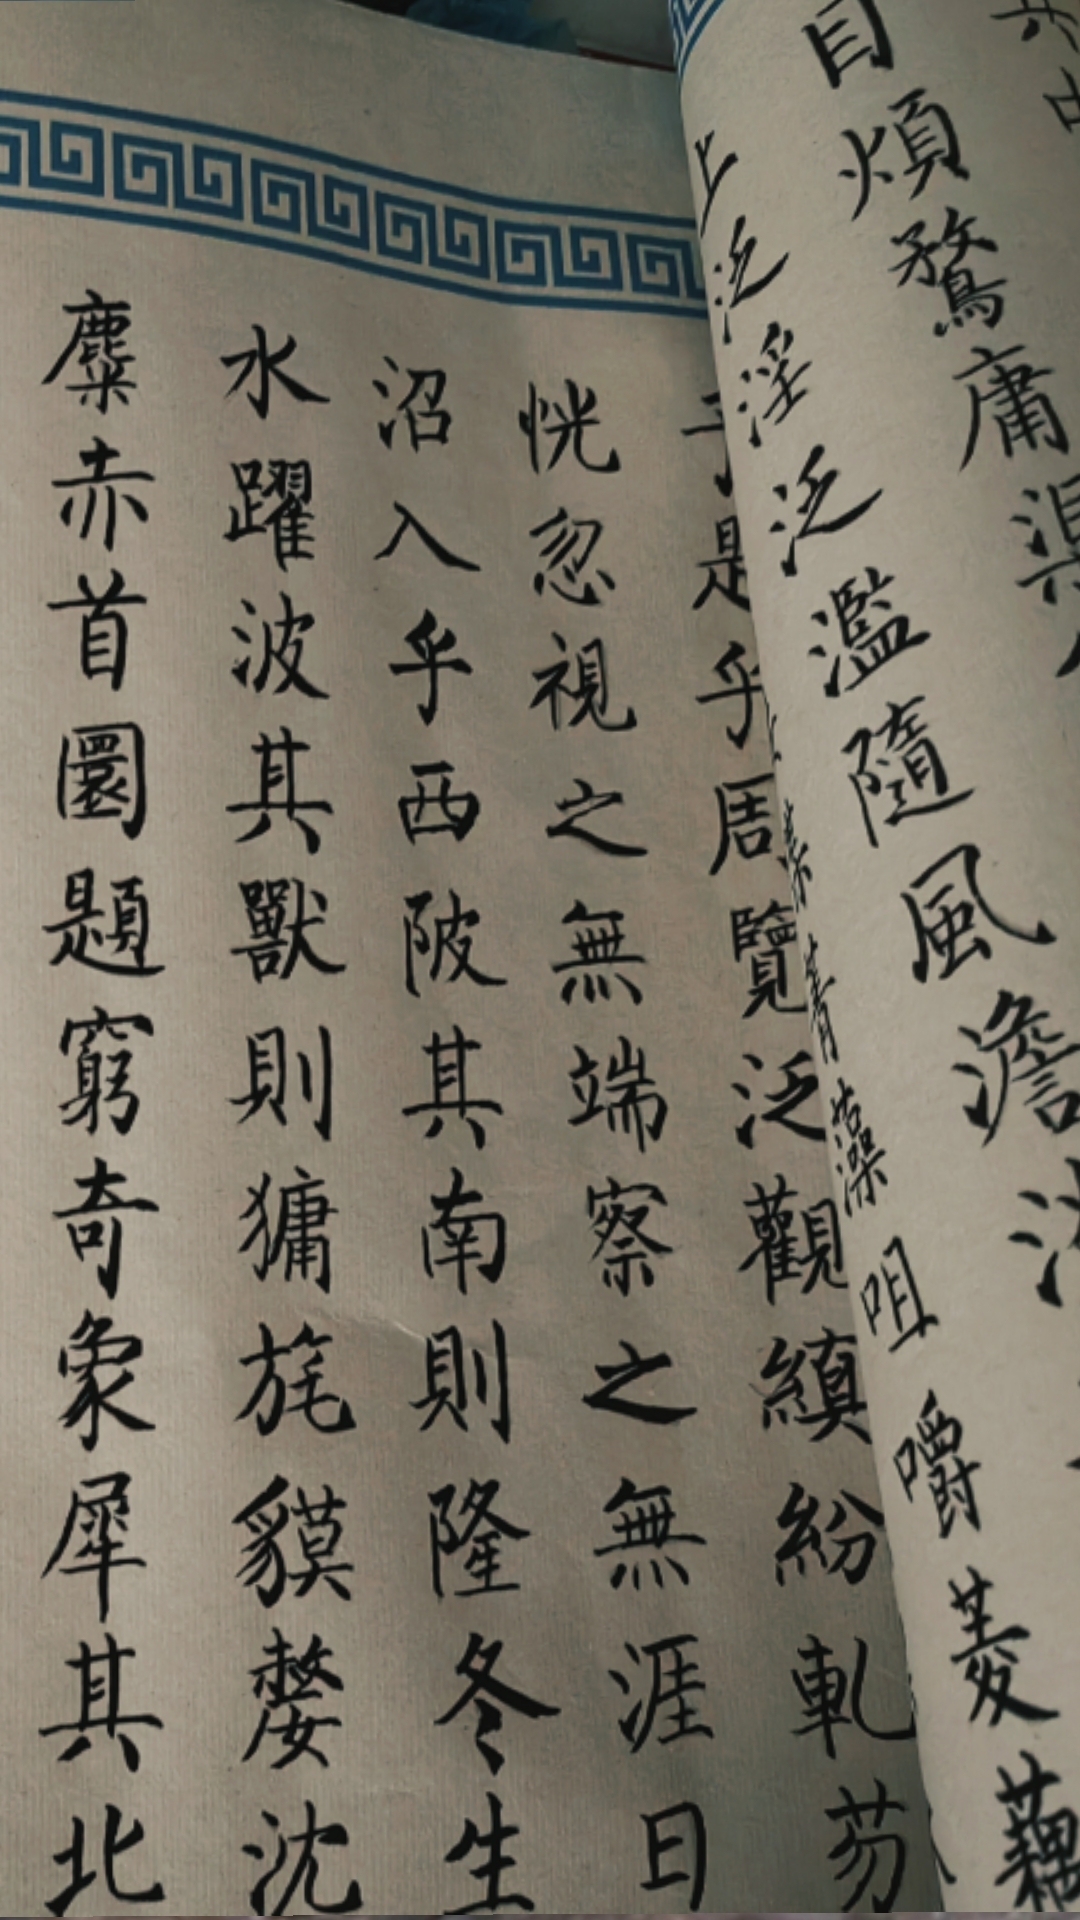 其中
目煩鶩庸渠
上泛淫泛濫隨風澹淡
菁藻咀嚼菱藕
于是乎周覽泛觀縝紛軋芴
恍忽視之無端察之無涯日
沼入乎西陂其南則隆冬生
水躍波其獸則㺎旄貘嫠沈
麋赤首圜題窮奇象犀其北